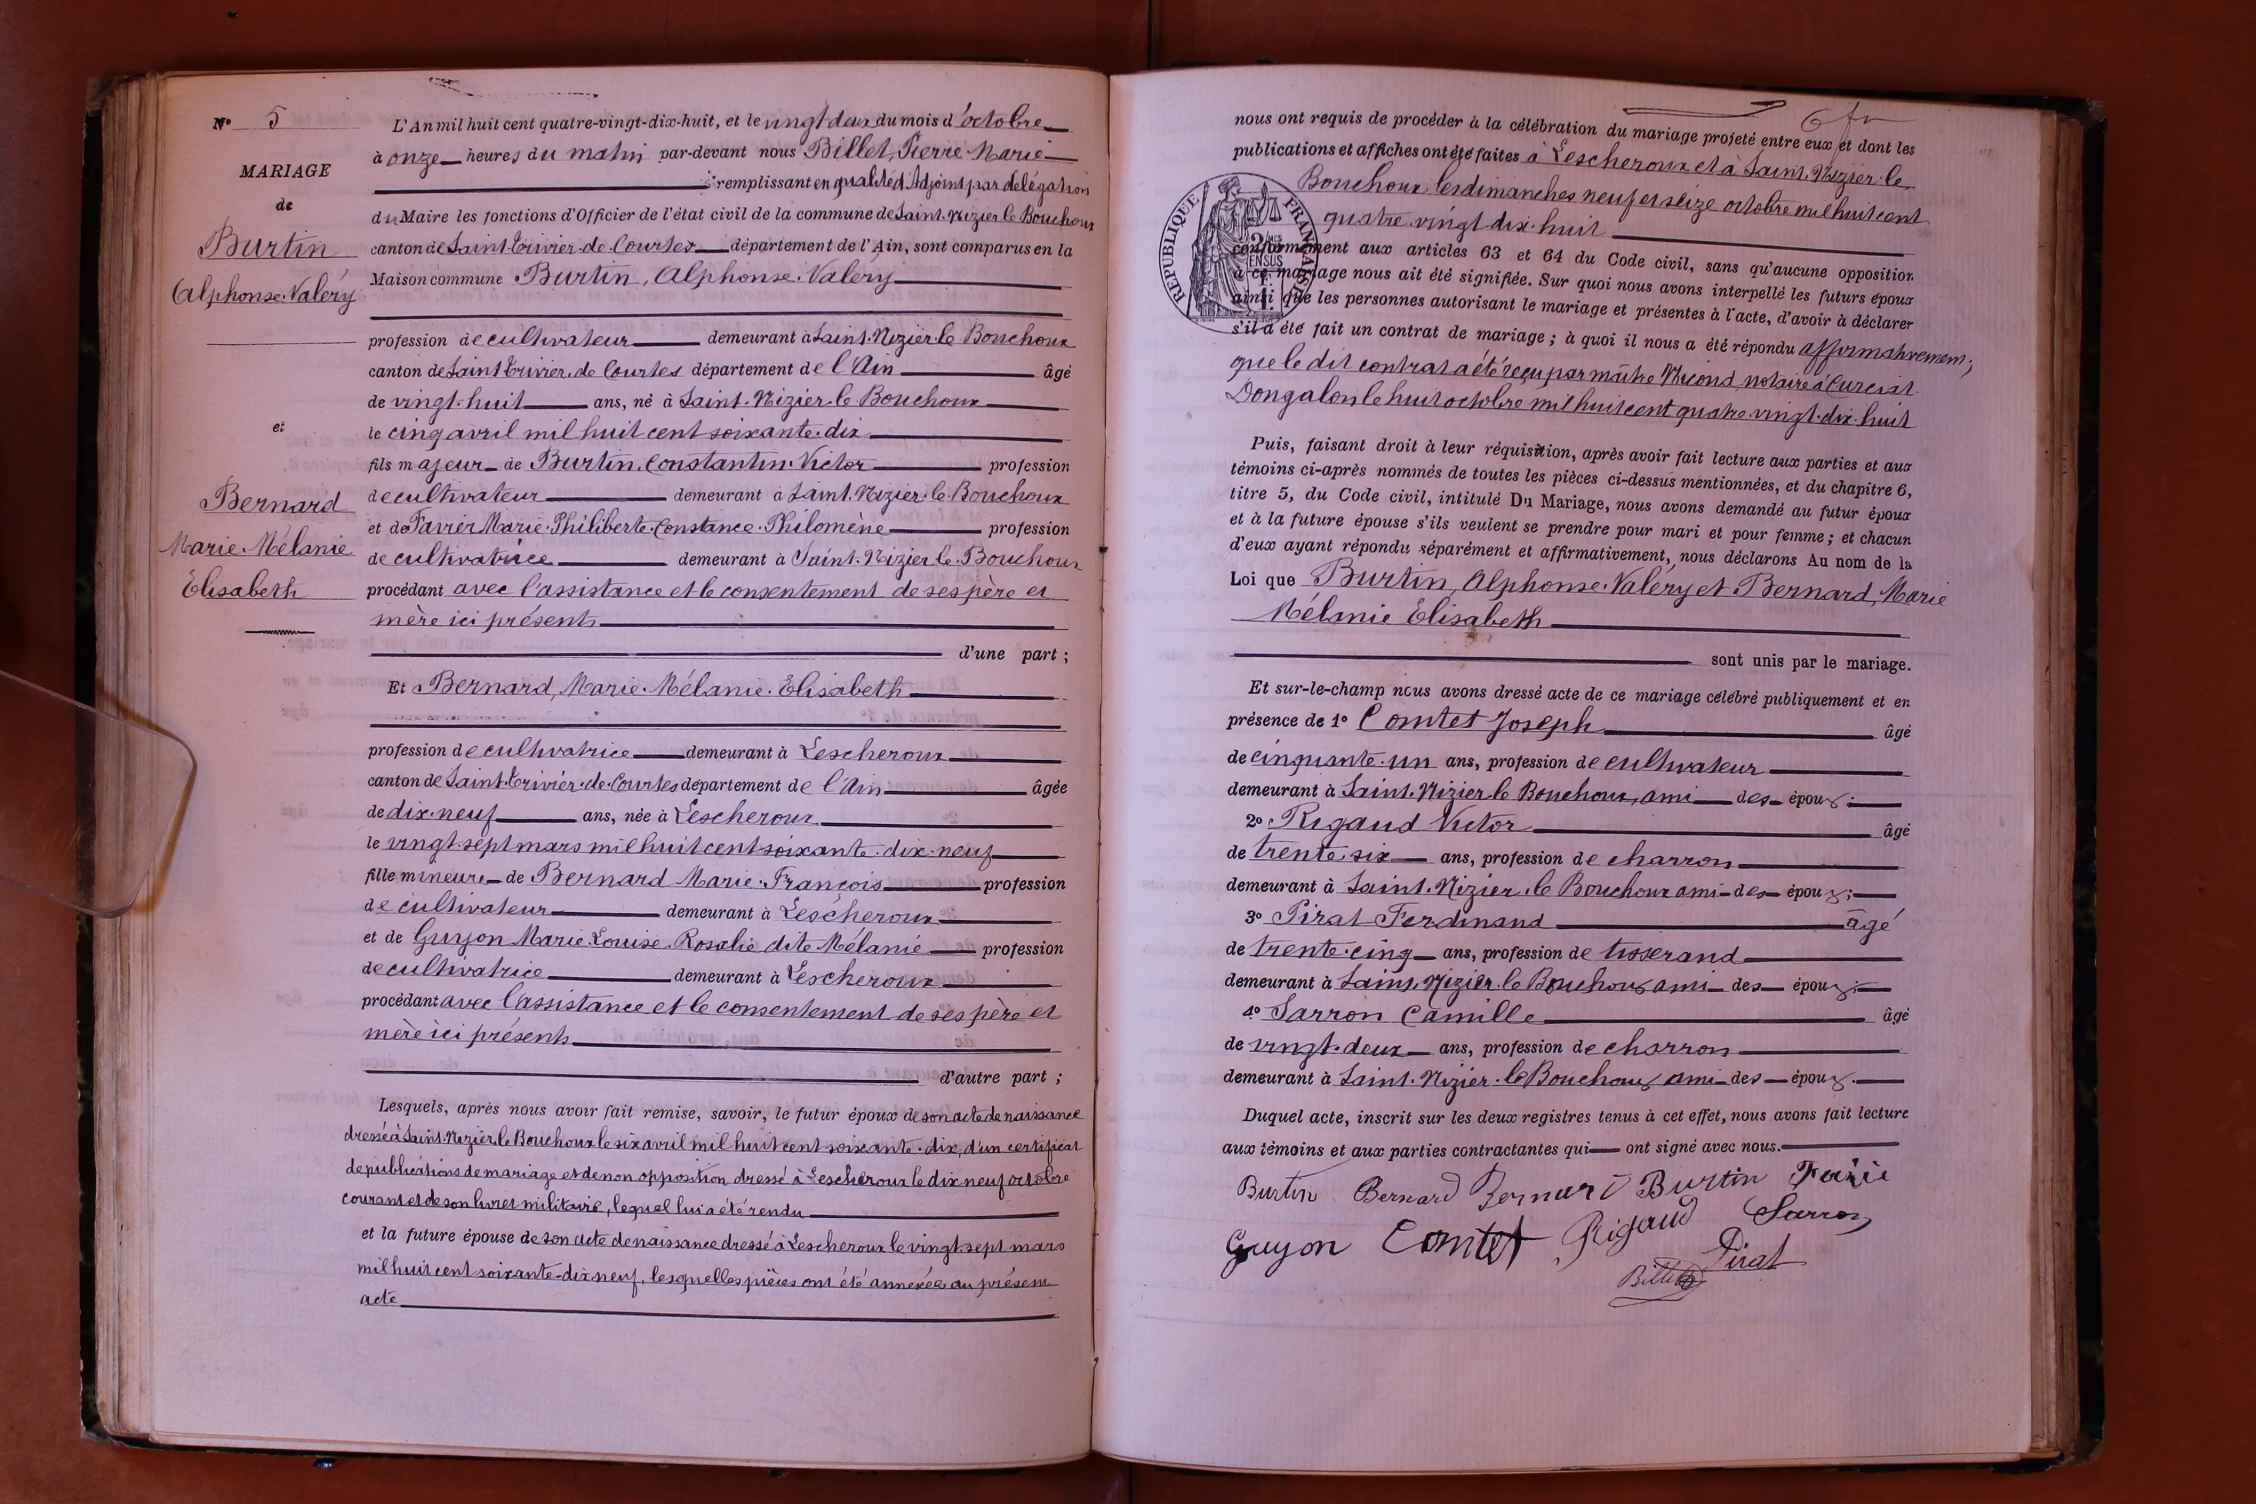 N° 5
MARIAGE
de
Burtin
Alphonse Valéry
et
Bernard
Marie Mélanie
Elisabeth
L'An mil huit cent quatre-vingt-dix-huit, et le vingt deux du mois d'octobre
à onze heures du matin par-devant nous Billet, Pierre Marie
remplissant en qualité d'Adjoint par délégation
du Maire les fonctions d'Officier de l'état civil de la commune de Saint. Nizier le Bouchoux
canton de Saint Trivier. de Courtes département de l'Ain, sont comparus en la
Maison commune Burtin, Alphonse. Valéry
profession de cultivateur demeurant à Saint. Nizier. le Bouchoux
canton de Saint Trivier. de Courtes département de l'Ain âgé
de vingt. huit ans, né à Saint. Nizier. le Bouchoux
le cinq avril mil huit cent soixante. dix
fils majeur de Burtin, Constantin. Victor profession
de cultivateur demeurant à Saint. Nizier. le Bouchoux
et de Favier Marie. Philiberte. Constance. Philomène profession
de cultivatrice demeurant à Saint. Nizier. le Bouchoux
procédant avec l'assistance et le consentement de ses père et
mère ici présents
d'une part ;
Et Bernard, Marie. Mélanie. Elisabeth
profession de cultivatrice demeurant à Lescheroux
canton de Saint. Trivier. de Courtes département de l'Ain âgée
de dix. neuf ans, née à Lescheroux
le vingt. sept mars mil huit cent soixante. dix. neuf
fille mineure de Bernard Marie. François profession
de cultivateur demeurant à Lescheroux
et de Guyon Marie. Louise. Rosalie dite Mélanie profession
de cultivatrice demeurant à Lescheroux
procédant avec l'assistance et le consentement de ses père et
mère ici présents
d'autre part ;
Lesquels, après nous avoir fait remise, savoir, le futur époux de son acte de naissance
dressé à Saint. Nizier le Bouchoux le six avril mil huit cent soixante. dix, d'un certificat
de publications de mariage et de non opposition dressé à Lescheroux le dix neuf octobre
courant et de son livret militaire, lequel lui a été rendu
et la future épouse de son acte de naissance dressé à Lescheroux le vingt. sept mars
mil huit cent soixante-dix neuf, lesquelles pièces ont été annexées au présent
acte
nous ont requis de procéder à la célébration du mariage projeté entre eux et dont les
publications et affiches ont été faites à Lescheroux et à Saint. Nizier. le
Bouchoux les dimanches neuf et seize octobre mil huit cent
quatre. vingt dix. huit
RÉPUBLIQUE FRANÇAISE
conformément aux articles 63 et 64 du Code civil, sans qu'aucune opposition
à ce mariage nous ait été signifiée. Sur quoi nous avons interpellé les futurs époux
ainsi que les personnes autorisant le mariage et présentes à l'acte, d'avoir à déclarer
s'il a été fait un contrat de mariage ; à quoi il nous a été répondu affirmativement ;
que le dit contrat a été reçu par maître Nicond, notaire à Curciat
Dongalon le huit octobre mil huit cent quatre. vingt. dix. huit
Puis, faisant droit à leur réquisition, après avoir fait lecture aux parties et aux
témoins ci-après nommés de toutes les pièces ci-dessus mentionnées, et du chapitre 6,
titre 5, du Code civil, intitulé Du Mariage, nous avons demandé au futur époux
et à la future épouse s'ils veulent se prendre pour mari et pour femme ; et chacun
d'eux ayant répondu séparément et affirmativement, nous déclarons Au nom de la
Loi que Burtin, Alphonse. Valéry et Bernard, Marie
Mélanie Elisabeth
sont unis par le mariage.
Et sur-le-champ nous avons dressé acte de ce mariage célébré publiquement et en
présence de 1° Comtet Joseph âgé
de cinquante. un ans, profession de cultivateur
demeurant à Saint. Nizier le Bouchoux, ami des époux ;
2° Rigaud Victor âgé
de trente. six ans, profession de charron
demeurant à Saint. Nizier. le Bouchoux ami des époux ;
3° Pirat Ferdinand âgé
de trente. cinq ans, profession de tisserand
demeurant à Saint. Nizier. le Bouchoux ami des époux ;
4° Sarron Camille âgé
de vingt. deux ans, profession de charron
demeurant à Saint. Nizier. le Bouchoux ami des époux.
Duquel acte, inscrit sur les deux registres tenus à cet effet, nous avons fait lecture
aux témoins et aux parties contractantes qui ont signé avec nous.
Burtin Bernard Bernard Burtin
Guyon Comtet Rigaud Sarron
Pirat
Billet